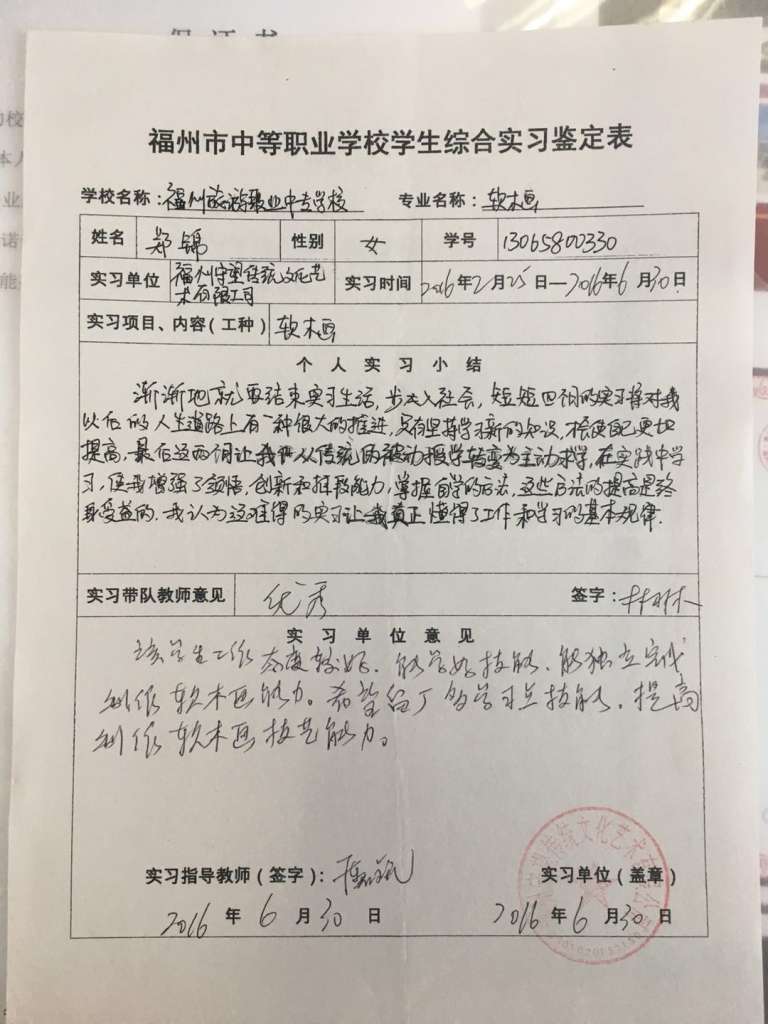 保证书
福州市中等职业学校学生综合实习鉴定表
学校名称：福州旅游职业中专学校 专业名称：软木画
姓名 郑锦 性别 女 学号 13065800330
实习单位 福州守望传统文化艺术有限公司 实习时间 2016年2月25日—2016年6月30日
实习项目、内容（工种） 软木画
个人实习小结
渐渐地就要结束实习生活，步入社会，短短四个月的实习将对我
以后的人生道路上有一种很大的推进，只有坚持学习新的知识，才会使自己更加
提高，最后这两个月让我们从传统的被动授学转变为主动求学，在实践中学
习，使我增强了领悟，创新和推敲能力，掌握自学的方法，这些方法的提高是终
身受益的，我认为这难得的实习让我真正懂得了工作和学习的基本规律.
实习带队教师意见 优秀 签字：
实习单位意见
该学生工作态度较好、能学好技能、能独立完成
制作软木画能力。希望留厂多学习点技能，提高
制作软木画技艺能力。
实习指导教师（签字）： 实习单位（盖章）
2016年6月30日 2016年6月30日
传统文化艺术有限公司